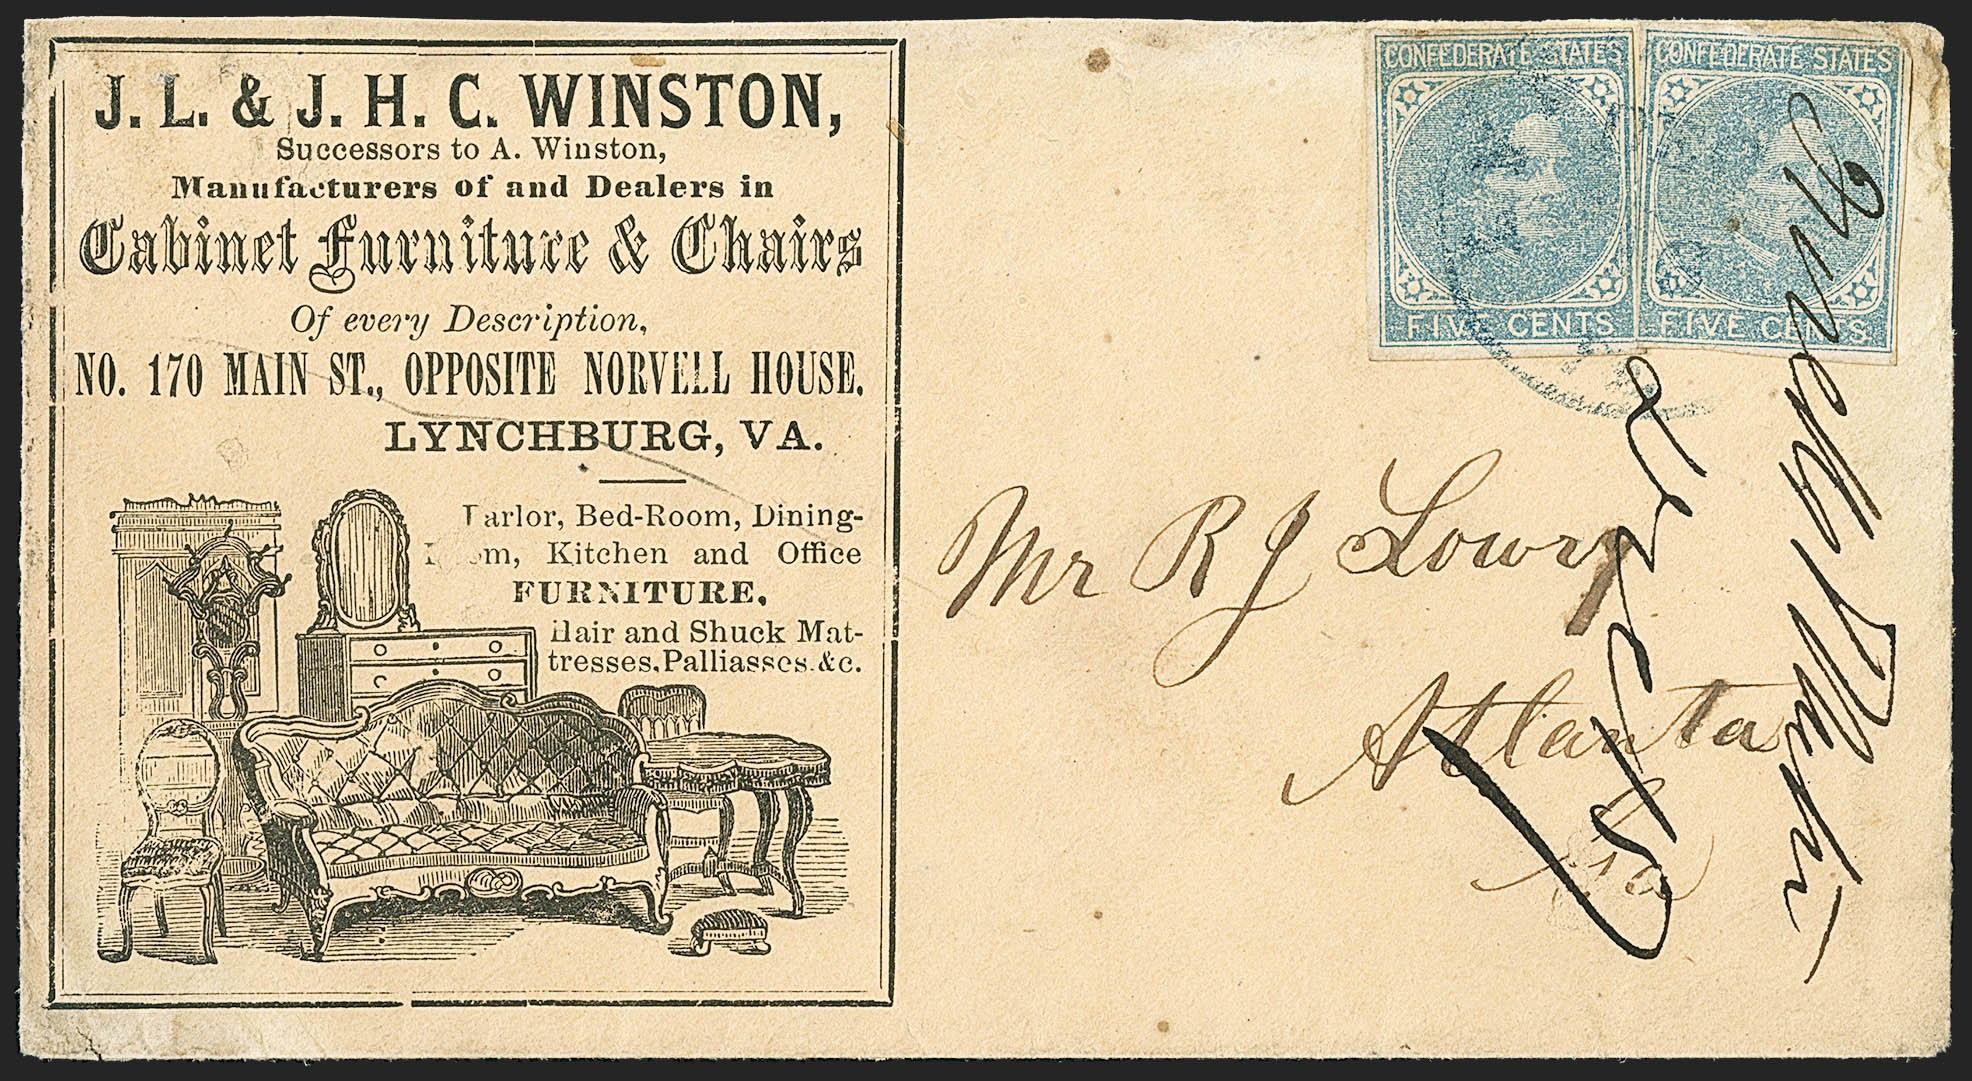 J. L. & J. H. C. WINSTON,
Successors to A. Winston,
Manufacturers of and Dealers in
Cabinet Furniture & Chairs
Of every Description,
NO. 170 MAIN ST., OPPOSITE NORVELL HOUSE.
LYNCHBURG, VA.
Parlor, Bed-Room, Dining-
Room, Kitchen and Office
FURNITURE,
Hair and Shuck Mat-
tresses, Palliasses. &c.
CONFEDERATE STATES
FIVE CENTS
CONFEDERATE STATES
FIVE CENTS.
Mr R J Lowry
Atlanta
Ga